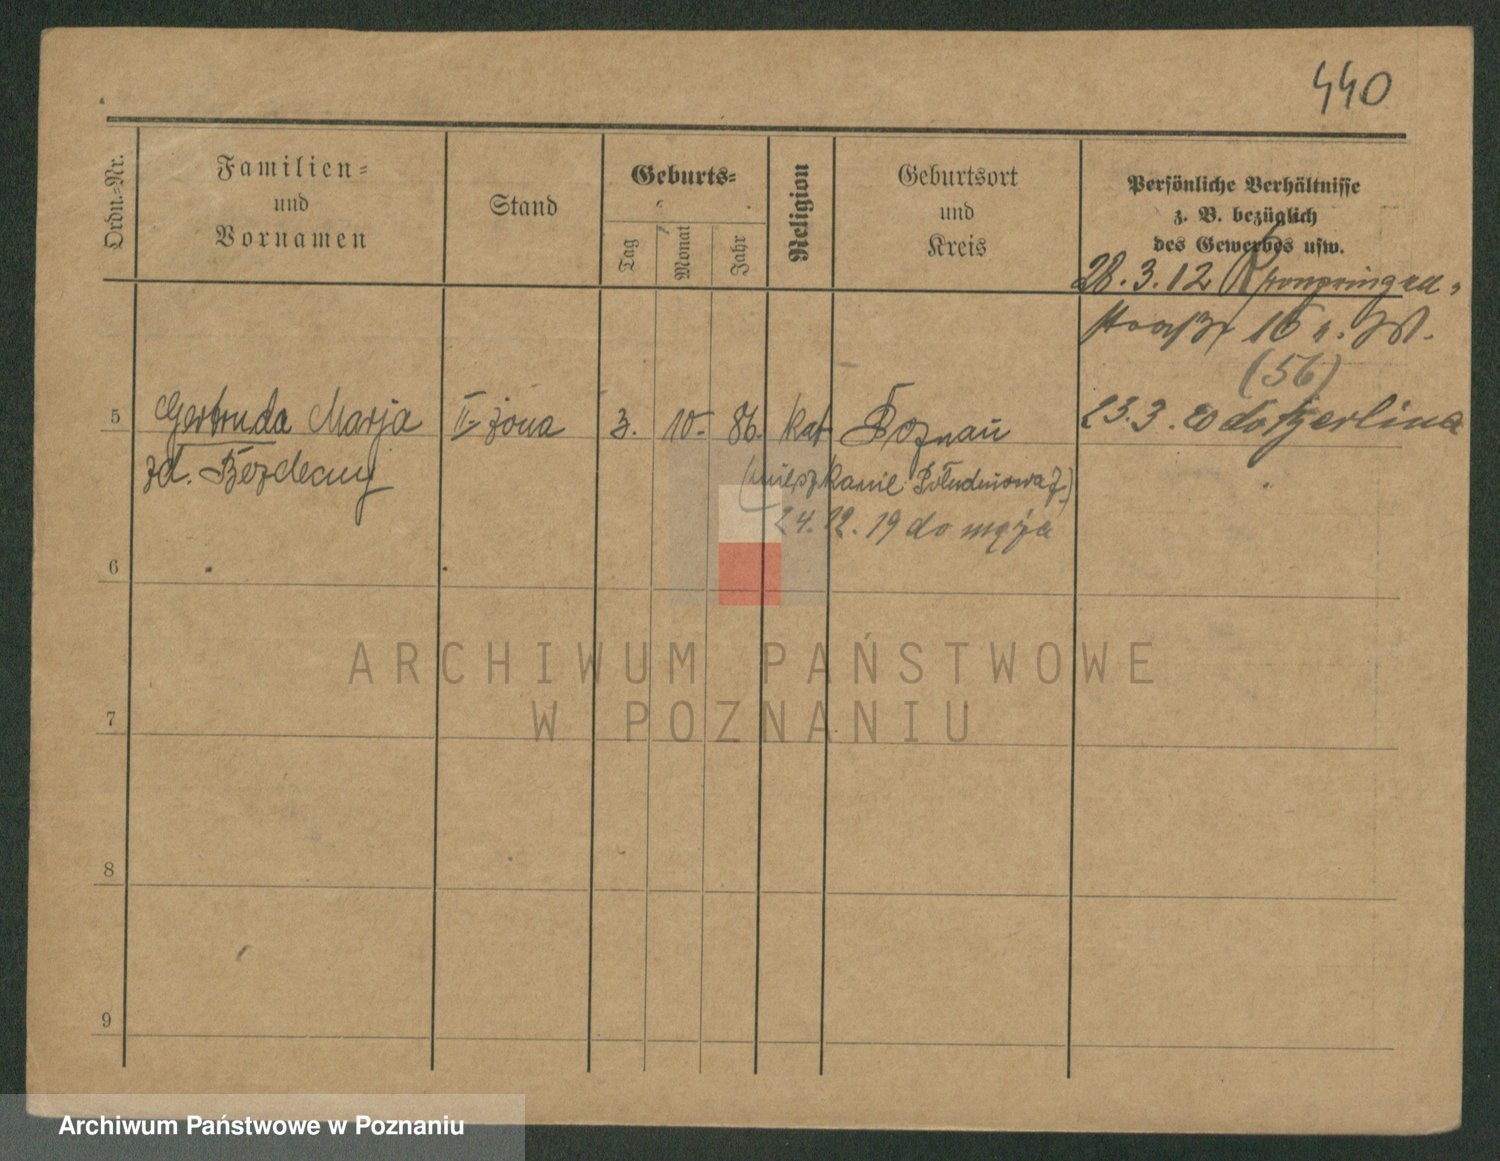 440
Ordn.=Nr.
Familien=
und
Vornamen
Stand
Geburts=
Tag
Monat
Jahr
Religion
Geburtsort
und
Kreis
Persönliche Verhältnisse
z. B. bezüglich
des Gewerbes usw.
28.3.12 Kronprinzen-
straße 16 n. W.
(56)
5 Gertruda Marja II żona 3. 10. 86. kat Poznań 23.3. 20 do Berlina
zd.
(mieszkanie Południowa 7.)
24.12.19 do męża
6
7
8
9
ARCHIWUM PAŃSTWOWE
W POZNANIU
Archiwum Państwowe w Poznaniu